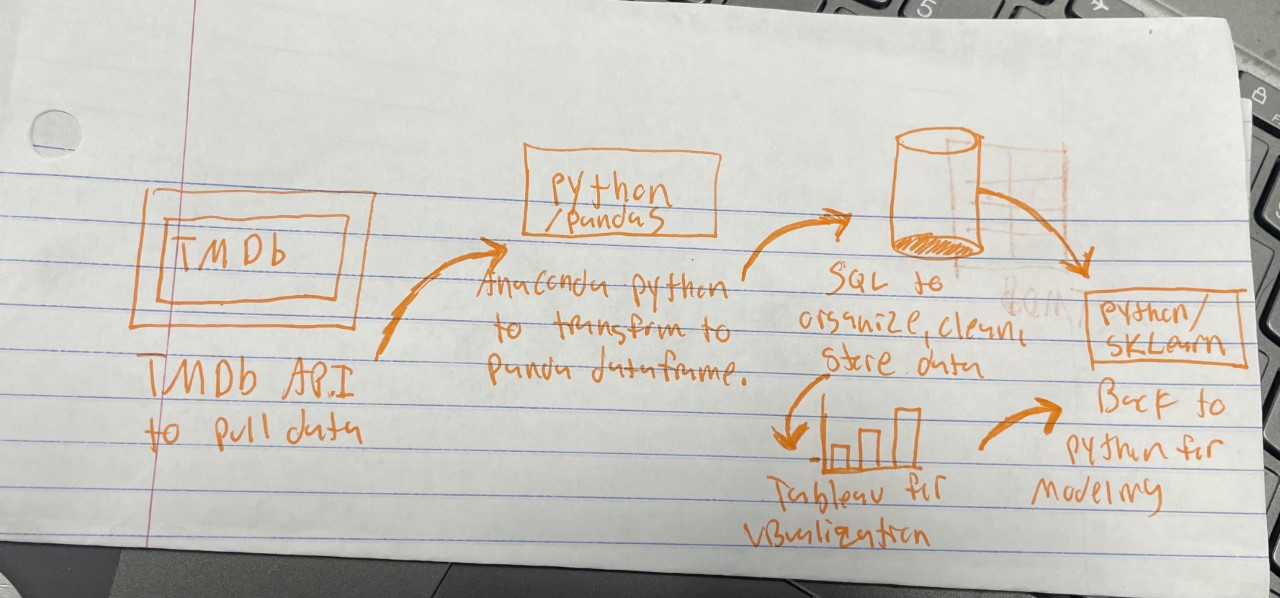 TMDb
TMDb API
to pull data
python
/pandas
Anaconda python
to transfrm to
Panda dataframe.
SQL to
organize, clean,
store data
Tableau for
visualization
python/
SKLearn
Back to
python for
Modeling